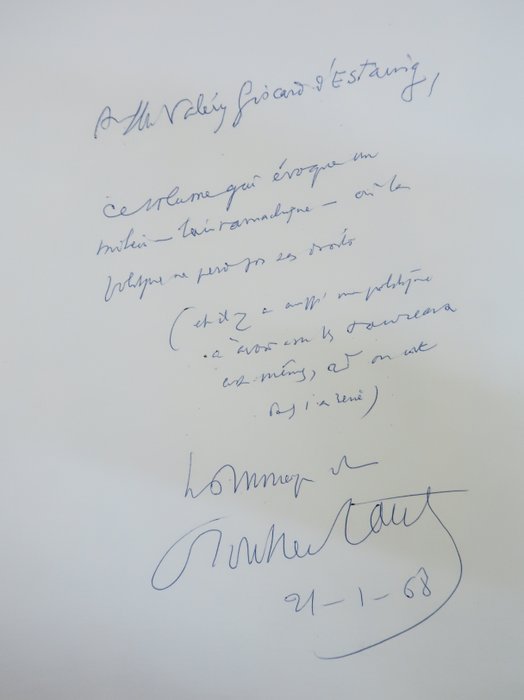 A M Valéry Giscard d'Estaing,
ce volume qui évoque un
milieu - tauromachique - où la
politique ne perd pas ses droits
(et il y a aussi une politique
à avoir avec les taureaux
eux-mêmes, qd on est
dans l'arène)
hommage de
21-1-68